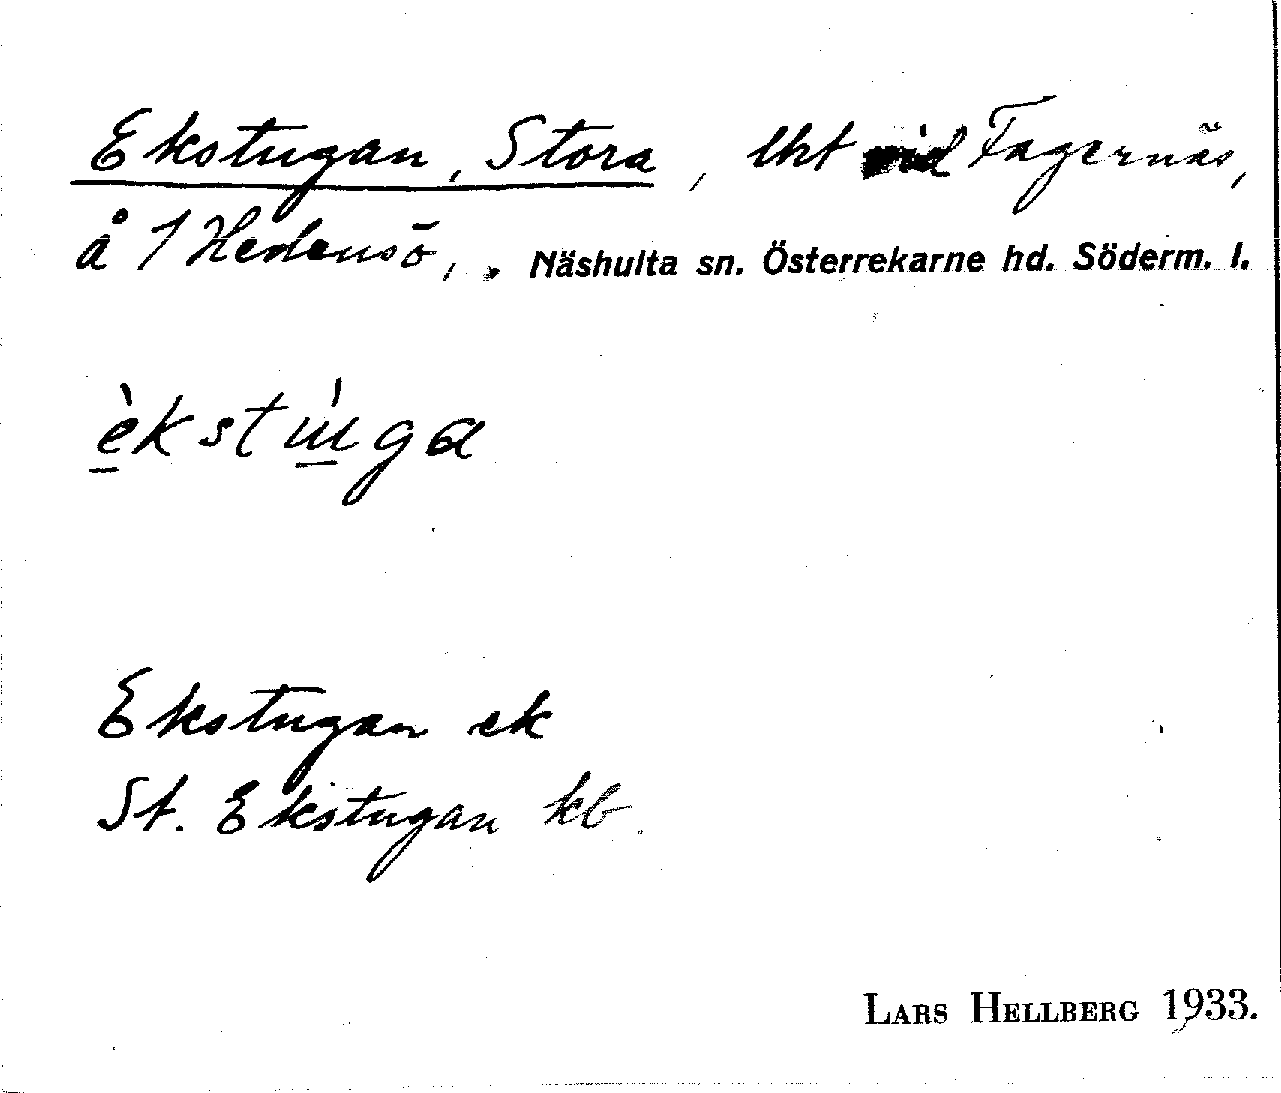 Ekstugan, Stora, lht vid Fagernäs,
å 1 Hedensö, , Näshulta sn. Österrekarne hd. Söderm. l.
èkstu̇ga
Ekstugan ek
St. Ekstugan kb.
LARS HELLBERG 1933.